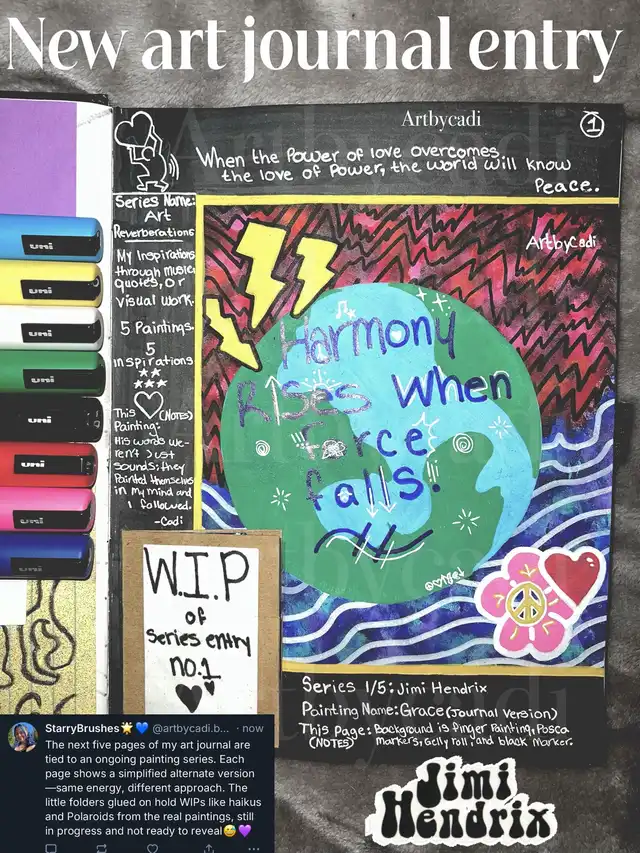 New art journal entry
Artbycadi
1
When the Power of love overcomes
the love of Power, the world will know
Peace.
Series Name:
Art
Reverberations
My Inspirations
through music,
quotes, or
visual work.
5 Paintings.
5
inspirations
This (NOTES)
Painting:
His words we-
ren't Just
sounds; they
Painted themselves
in my mind and
I followed.
-Cadi
uni
uni
uni
uni
uni
uni
uni
ArtbyCadi
Harmony
Rises When
Force
falls.
W.I.P
of
Series entry
no.1
Series 1/5: Jimi Hendrix
Painting Name: Grace (Journal version)
This Page: Background is finger Painting, Posca
(NOTES) markers, Gelly roll, and black marker.
StarryBrushes @artbycadi.b... · now
The next five pages of my art journal are
tied to an ongoing painting series. Each
page shows a simplified alternate version
—same energy, different approach. The
little folders glued on hold WIPs like haikus
and Polaroids from the real paintings, still
in progress and not ready to reveal
Jimi
Hendrix
Artbycadi